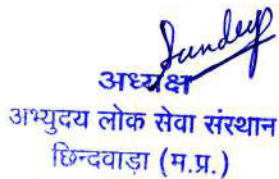 Sundeep
अध्यक्ष
अभ्युदय लोक सेवा संस्थान
छिन्दवाड़ा (म.प्र.)